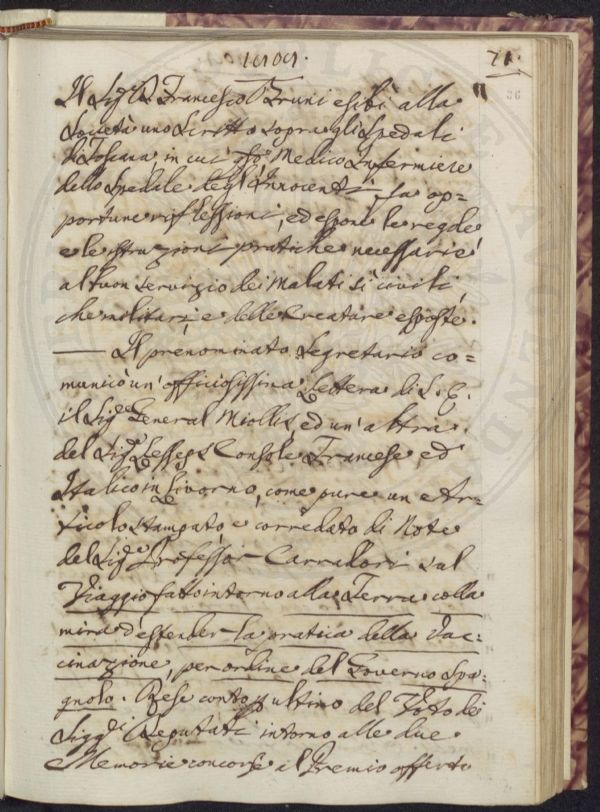 71.
Il Sig.r D. Francesco Bruni esibì alla
Società uno Scritto sopra gli Spedali
di Toscana in cui Medico Infermiere
dello Spedale degl'Innocenti, fa op=
portune riflessioni, ed espone le regole
e le istruzioni pratiche necessarie
al buon servizio dei Malati sì civili,
che militari, e delle Creature esposte.
— Il prenominato Segretario co=
municò un'officiosissima Lettera di S. E.
il Sig.e General Miollis, ed un'altra
del Sig.e Lesseps Console Francese ed
Italico in Livorno, come pure un Ar=
ticolo stampato, e corredato di Note
del Sig.e Professor Carradori sul
Viaggio fatto intorno alla Terra colla
mira d'estender la pratica della Vac=
cinazione, per ordine del Governo Spa=
gnolo. Rese conto p ultimo del Voto dei
Sigg.i Deputati intorno alle due
Memorie concorse al Premio offerto